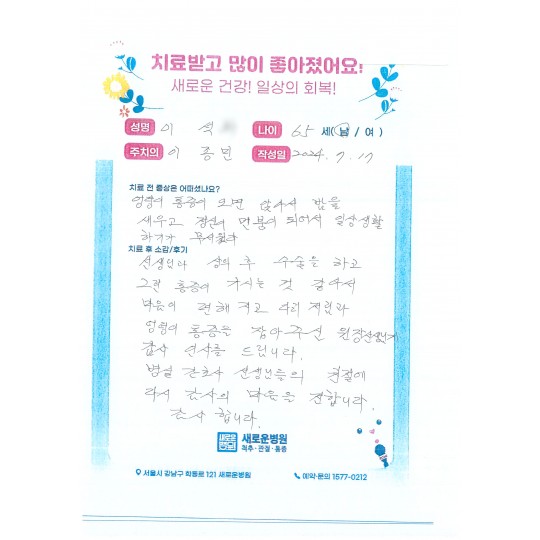 치료받고 많이 좋아졌어요!
새로운 건강! 일상의 회복!
성명 이 석 나이 65 세(남/여)
주치의 이종민 작성일 2024. 7. 17
치료 전 증상은 어떠셨나요?
엉덩이 통증이 오면 앉아서 밤을
새우고 정신이 멘붕이 되어서 일상생활
하기가 무서웠다
치료 후 소감/후기
선생님과 상의 후 수술을 하고
그런 통증이 가시는 것 같아서
마음이 편해지고 다리 저림과
엉덩이 통증을 잡아주신 원장선생님께
감사 인사를 드립니다.
병실 간호사 선생님들의 친절에
다시 감사의 마음을 전합니다.
감사 합니다.
새로운병원
새로운병원
척추·관절·통증
서울시 강남구 학동로 121 새로운병원
예약·문의 1577-0212